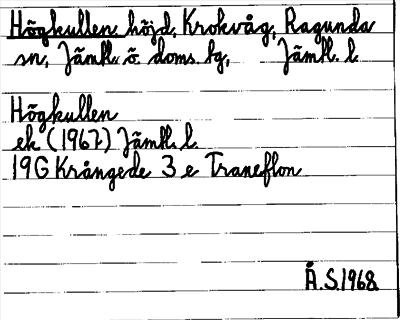 Högkullen höjd, Krokvåg, Ragunda
sn, Jämtl. ö. doms. tg, Jämtl. l.
Högkullen
ek (1967) Jämtl. l.
19G Krångede 3 e Traneflon
Å.S.1968.